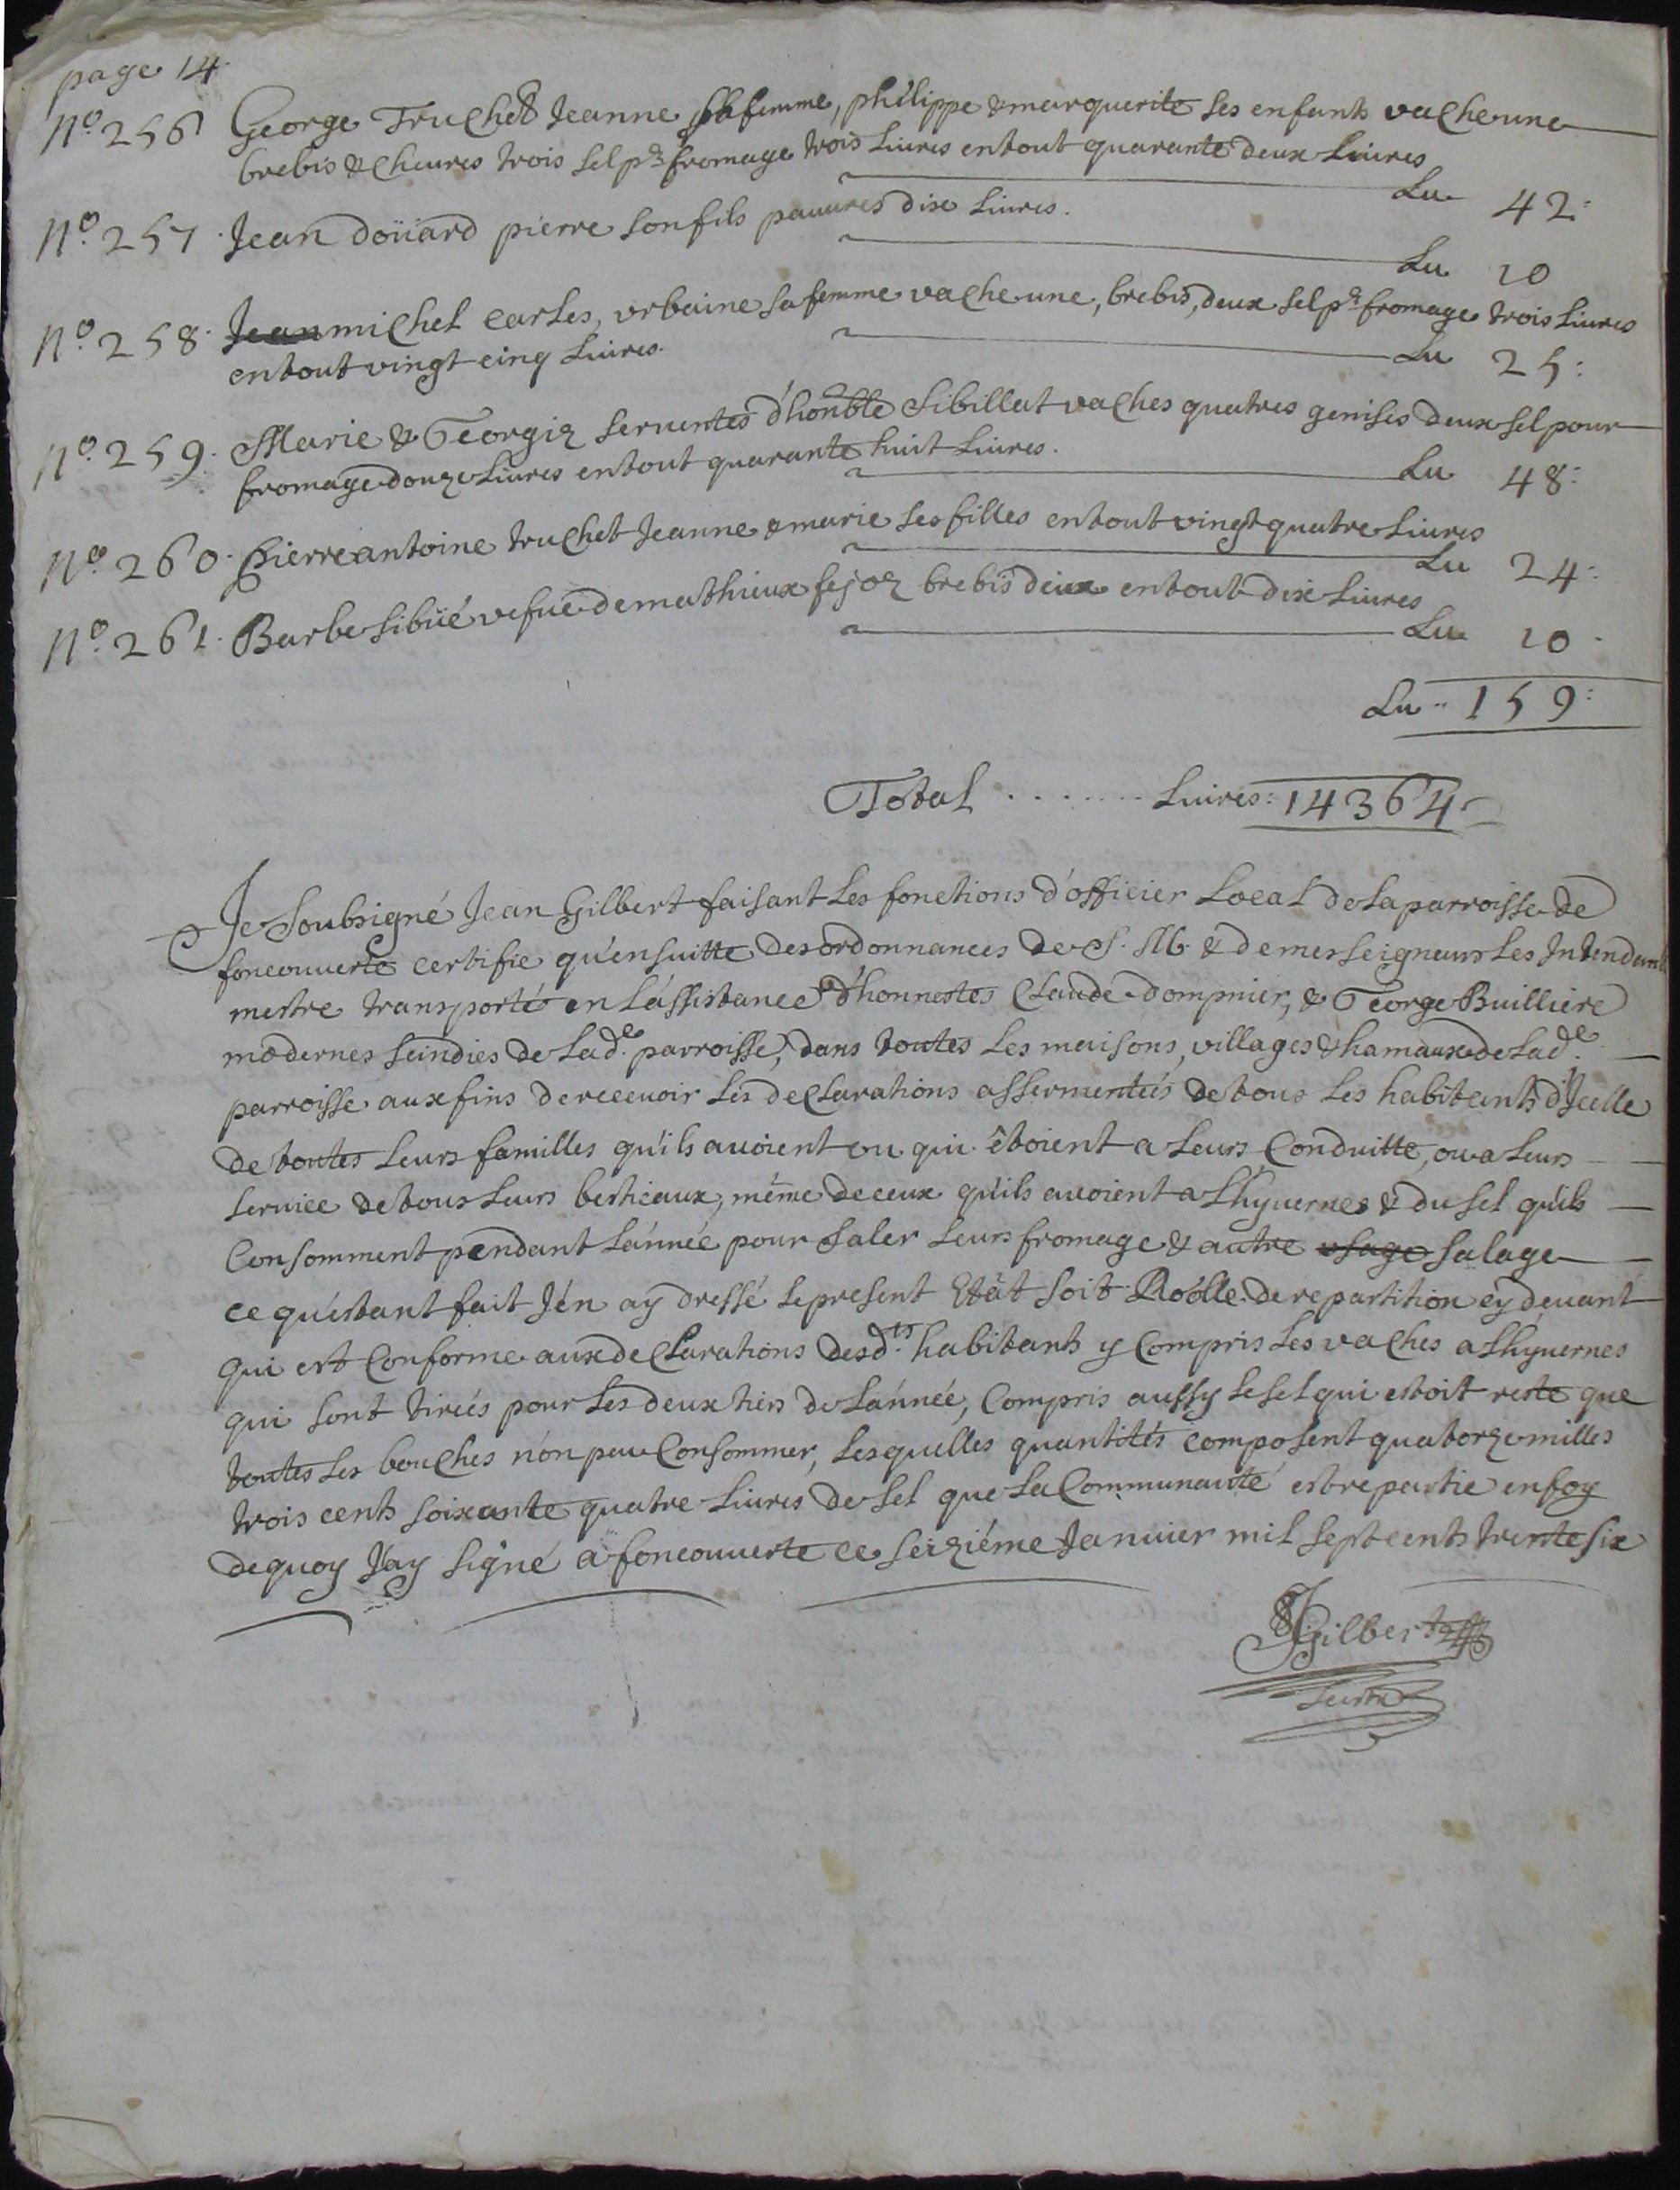 page 14
N.º 256 George Truchet Jeanne sa femme, philippe & marguerite ses enfants vache une
brebis & cheures trois sel p.r fromage trois Liures en tout quarante deux Liures
Lu 42:
N.º 257 Jean doüard pierre son fils pauures dix Liures.
Lu 10
N.º 258 Jean michel carles, urbaine sa femme vache une, brebis, deux sel p.r fromage trois Liures
en tout vingt cinq Liures.
Lu 25:
N.º 259. Marie & Georgiz seruentes d'honble Sibillat vaches quatres genises deux sel pour
fromage douze Liures en tout quarante huit Liures.
Lu 48:
N.º 260. Pierre antoine truchet Jeanne & marie ses filles en tout vingt quatre Liures
Lu 24:
N.º 261. Barbe sibüé vefue de mathieux fejoz brebis deux en tout dix Liures
Lu 10
Lu 159:
Total ........ Liures: 14364
Je soubsigné Jean Gilbert faisant Les fonctions d'officier Local de La parroisse de
foncouuerte certifie qu'ensuitte des ordonnances de S. M. & de messeigneurs Les Intendants
mestre transporté en L'assistance d'honnestes Claude dompnier, & George Buillière
modernes scindics de Lad.e parroisse, dans toutes Les maisons, villages & hamaux de Lad.e
parroisse aux fins de receuoir Les declarations assermentées de tous Les habitants d'Jcelle
de toutes Leurs familles qu'ils auoient ou qui êtoient a Leurs Conduitte, ou a Leurs
seruice de tous Leurs bestieaux, même de ceux qu'ils auoient a Lhyuernes & du sel qu'ils
Consomment pendant L'année pour saler Leurs fromage & autre usage salage
ce qu'estant fait J'en ay dressé Le present Etât soit Roolle de repartition cy deuant
qui est Conforme aux declarations desd.ts habitants y Compris Les vaches a Lhyuernes
qui sont tirées pour Les deux tiers de L'année, Compris aussy Le sel qui estoit reste que
toutes Les bouches n'on peu Consommer, Lesquelles quantités composent quatorze milles
trois cents soixante quatre Liures de sel que La Communauté est repartie en foy
de quoy J'ay signé a foncouuerte ce seiziéme Januier mil sept cents trente six
JGilbert